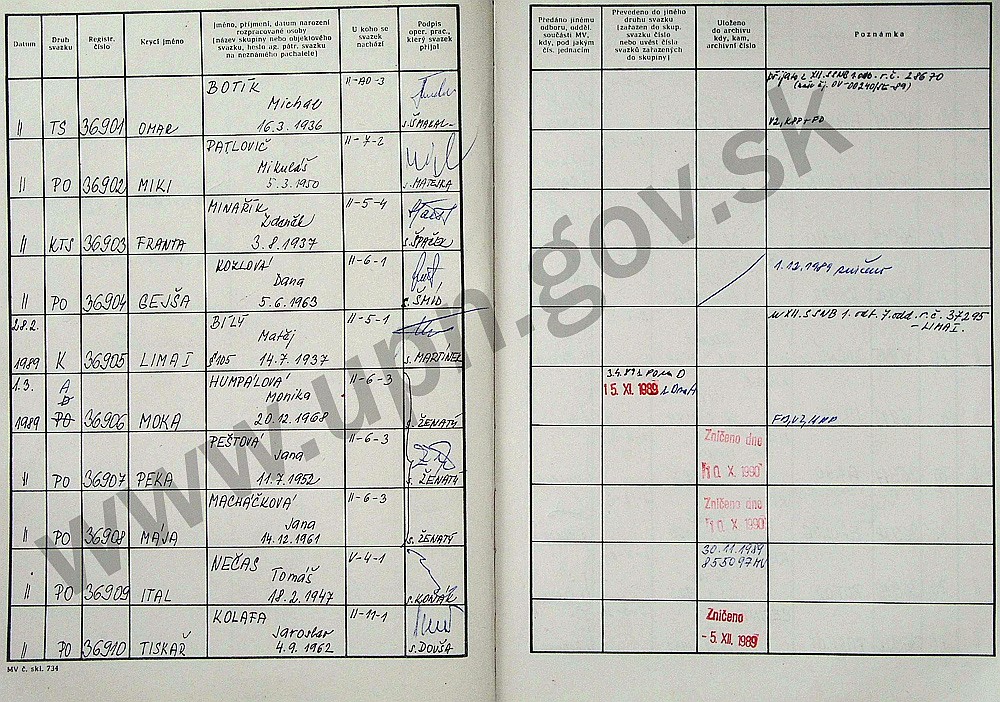 Datum
Druh svazku
Registr. číslo
Krycí jméno
Jméno, příjmení, datum narození
rozpracované osoby
(název skupiny nebo objektového
svazku, heslo ag. pátr. svazku
na neznámého pachatele)
U koho se
svazek
nachází
Podpis
oper. prac.,
který svazek
přijal
Předáno jinému
odboru, odděl.
součásti MV,
kdy, pod jakým
čís. jednacím
Převedeno do jiného
druhu svazku
(zařazen do skup.
svazku číslo
nebo uvést čísla
svazků zařazených
do skupiny)
Uloženo
do archívu
kdy, kam,
archivní číslo
Poznámka
BOTÍK II-AO-3
Michal
II TS 36901 OMAR 16.3.1936 s. ŠMAKAL
XII. SSNB 1. odb. r.č. 28670
PATLOVIČ II-7-2
Mikuláš
II PO 36902 MIKI 5.3.1950 s. MATEJKA
MINAŘÍK II-5-4
Zdeněk
II KTS 36903 FRANTA 3.8.1937 s. ŠPAČEK
KOZLOVÁ II-6-1
Dana
II PO 36904 GEJŠA 5.6.1963 s. ŠMÍD
1.12.1989 zničen
28.2. BÍLÝ II-5-1
Matěj
1989 K 36905 LIMA I §105 14.7.1937 s. MARTINEZ
XII. SSNB 1. odt. 7. odd. r.č. 37295
– LIMA I.
1.3. A HUMPÁLOVÁ II-6-3
D Monika
1989 PO 36906 MOKA 20.12.1968 s. ŽENATÝ
15. XI. 1989
PEŠTOVÁ II-6-3
Jana
II PO 36907 PEKA 11.7.1952 s. ŽENATÝ
Zničeno dne
10. X. 1990
MACHÁČKOVÁ II-6-3
Jana
II PO 36908 MÁJA 14.12.1961 s. ŽENATÝ
Zničeno dne
10. X. 1990
NEČAS V-4-1
Tomáš
II PO 36909 ITAL 18.2.1947 s. KOŇÁK
30.11.1989
855097 MV
KOLAFA II-11-1
Jaroslav
II PO 36910 TISKAŘ 4.9.1962 s. DOUŠA
Zničeno
- 5. XII. 1989
MV č. skl. 734
www.upn.gov.sk